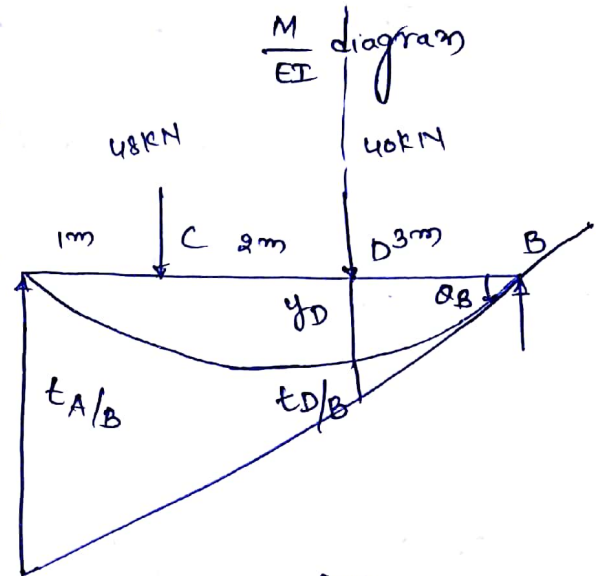 M
EI diagram
48KN
40KN
1m C 2m D 3m B
yD θB
tA/B tD/B